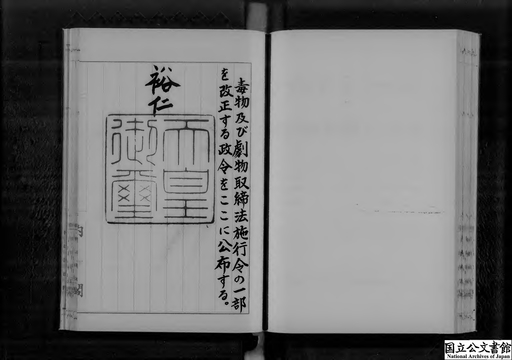 毒物及び劇物取締法施行令の一部
を改正する政令をここに公布する。
裕仁
天皇
御璽
国立公文書館
National Archives of Japan